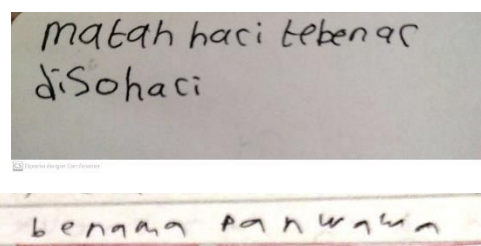 matah hari tebenar
disohari
CS Dipindai dengan CamScanner
benama panwawa